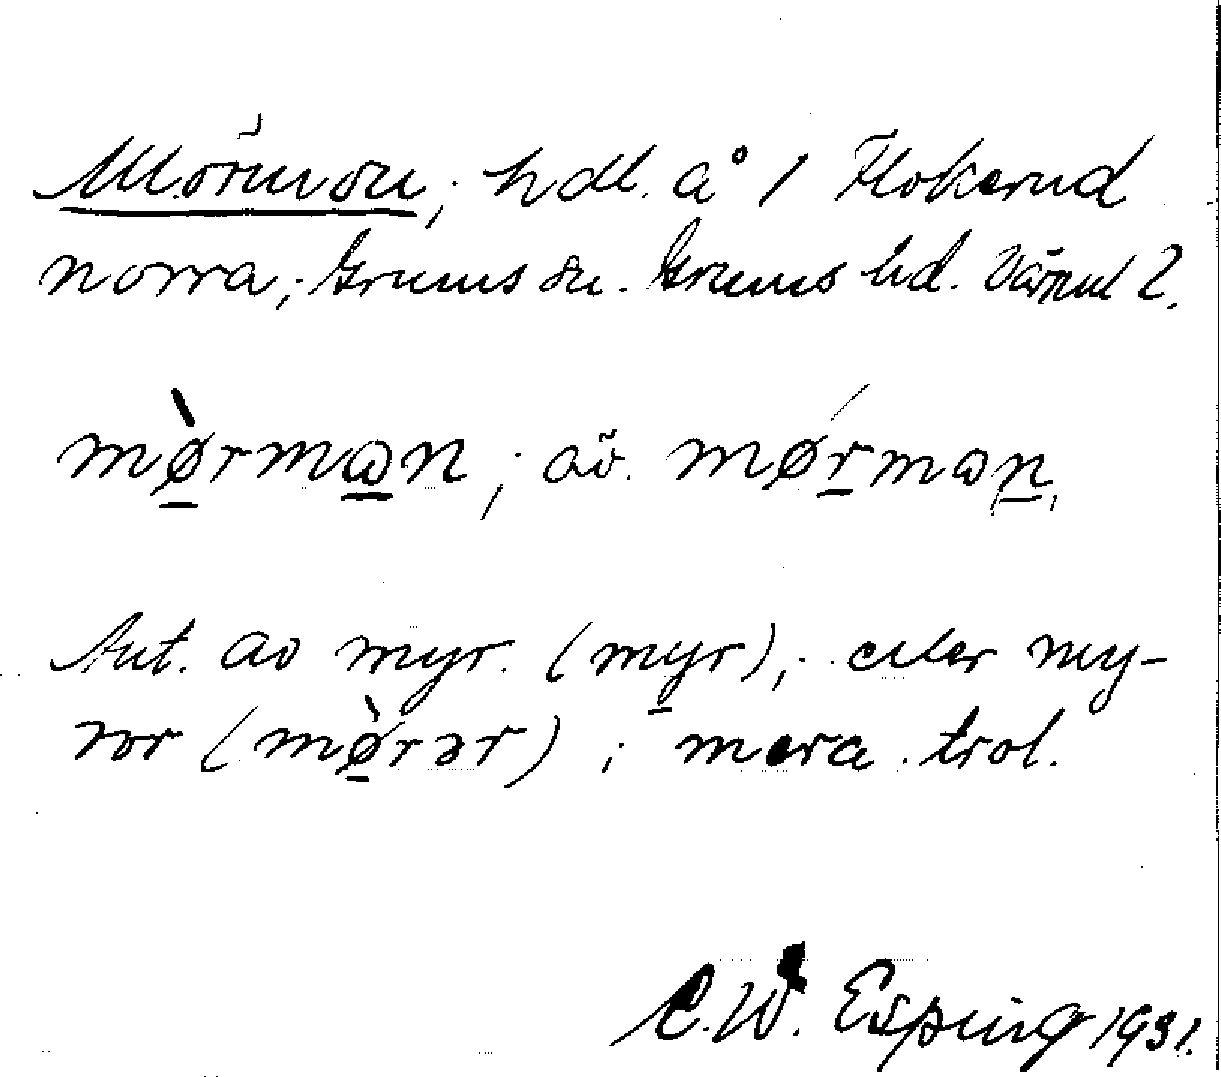 Mörmon; hdl. å 1 Flokerud
norra; Grums sn. Grums hd. Värml.
mø̀rmɷn; äv. mǿrmɷn,
Ant. av myr. (myr); eller my-
ror (mø̀rər); mera trol.
C.W. Esping 1931.